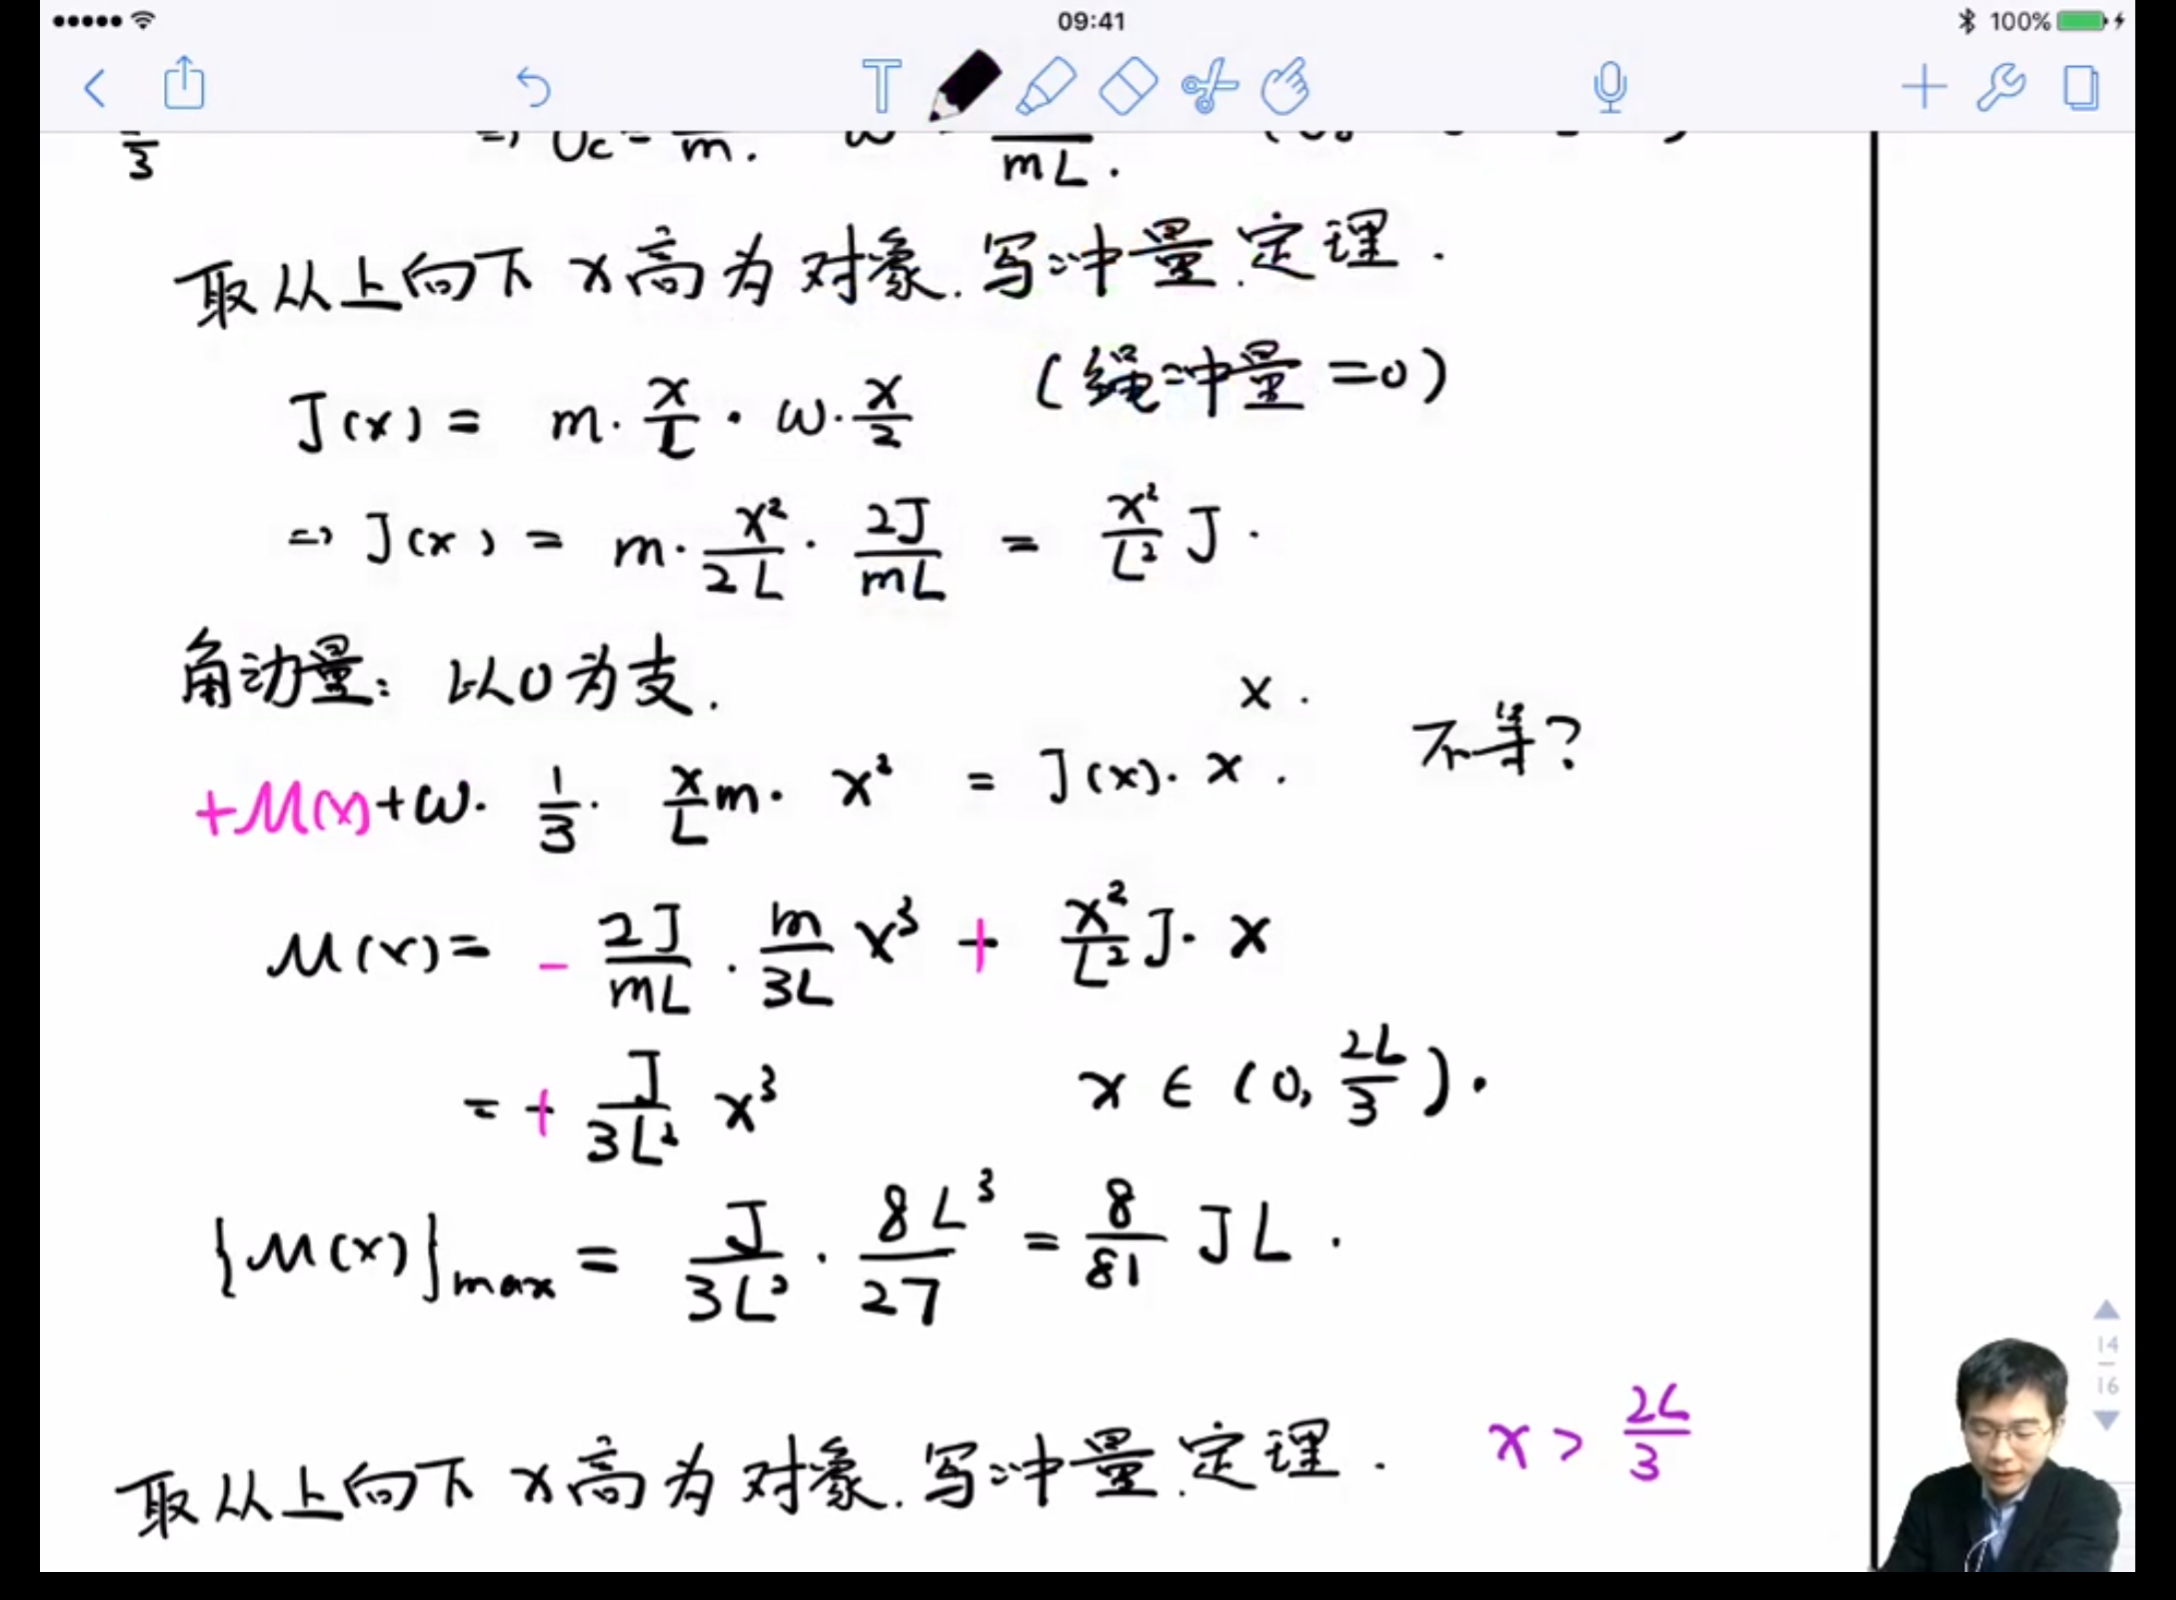 09:41
100%
1/3 ⇒ Uc = /m. ω = /mL.
取从上向下 x高为对象.写冲量定理.
J(x) = m·x/L·ω·x/2 (绳冲量=0)
⇒ J(x) = m·x²/2L·2J/mL = x²/L² J.
角动量: 以O为支. x.
+M(x)+ω·1/3·x/L m·x² = J(x)·x. 不等?
M(x) = - 2J/mL·m/3L x³ + x²/L² J·x
= + J/3L² x³ x∈(0, 2L/3).
{M(x)}max = J/3L²·8L³/27 = 8/81 JL.
取从上向下 x高为对象.写冲量定理. x > 2L/3
14
16